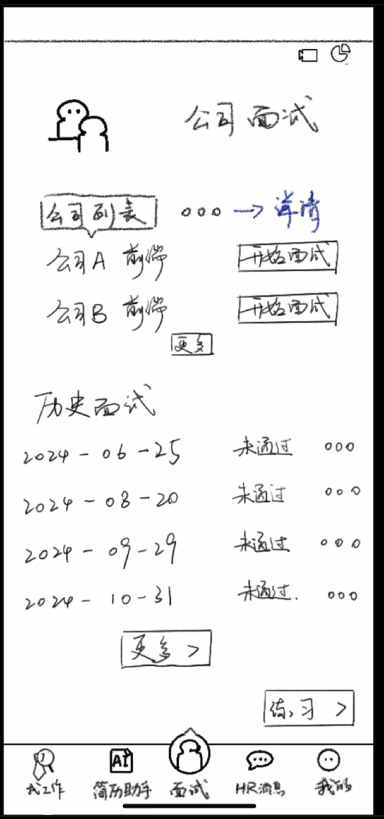 公司面试
公司列表 ooo → 详情
公司A 前端 开始面试
公司B 前端 开始面试
更多
历史面试
2024-06-25 未通过 ooo
2024-08-20 未通过 ooo
2024-09-29 未通过 ooo
2024-10-31 未通过. ooo
更多 >
练习 >
AI
找工作 简历助手 面试 HR消息 我的